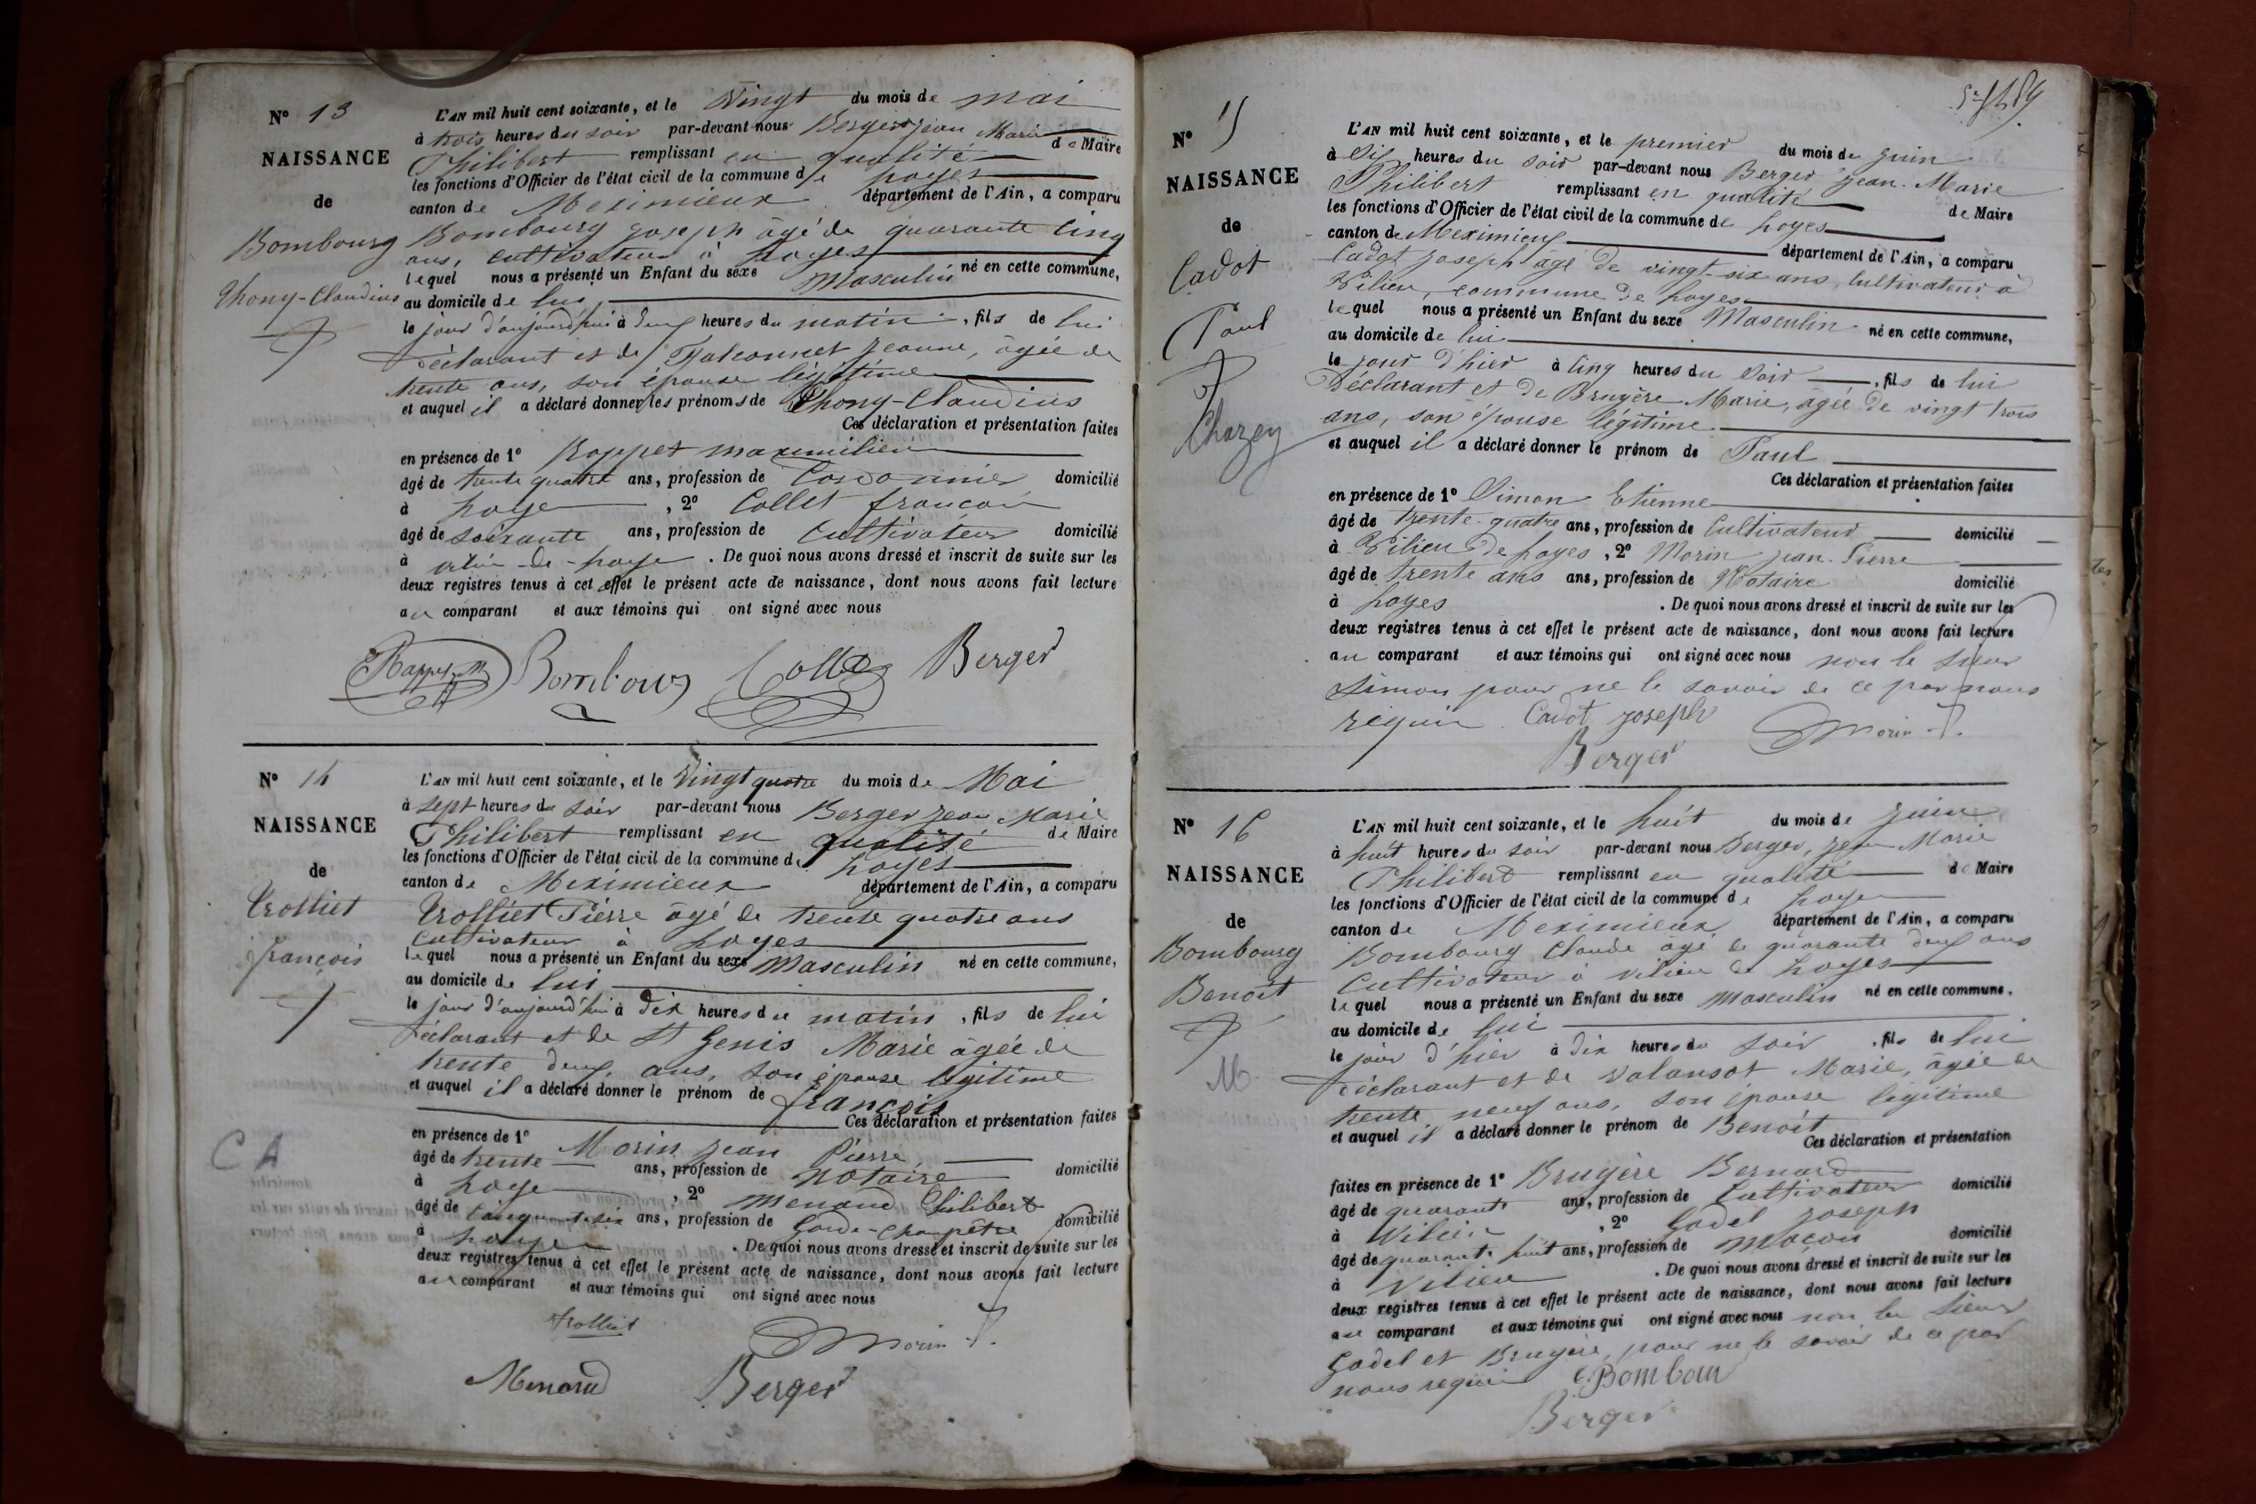 N° 13
NAISSANCE
de
Bombourg
Thony-Claudius
L'AN mil huit cent soixante, et le Vingt du mois de mai
à trois heures du soir par-devant nous Berger jean Marie
Philibert remplissant en qualité de Maire
les fonctions d'Officier de l'état civil de la commune de Loyes
canton de Meximieux département de l'Ain, a comparu
Bombourg joseph âgé de quarante cinq
ans, cultivateur à Loyes
lequel nous a présenté un Enfant du sexe Masculin né en cette commune,
au domicile de lui
le jour d'aujourd'hui à deux heures du matin, fils de lui
déclarant et de Falconnet jeanne, âgée de
trente ans, son épouse légitime
et auquel il a déclaré donner les prénoms de Thony-Claudius
Ces déclaration et présentation faites
en présence de 1° Rappet maximilien
âgé de trente quatre ans, profession de Cordonnier domicilié
à Loye, 2° Collet françois
âgé de soixante ans, profession de cultivateur domicilié
à vilieu-de-Loye. De quoi nous avons dressé et inscrit de suite sur les
deux registres tenus à cet effet le présent acte de naissance, dont nous avons fait lecture
au comparant et aux témoins qui ont signé avec nous
Rappet M Bombourg Collet Berger
N° 14
NAISSANCE
de
Trolliet
françois
CA
L'AN mil huit cent soixante, et le Vingt quatre du mois de Mai
à sept heures du soir par-devant nous Berger jean Marie
Philibert remplissant en qualité de Maire
les fonctions d'Officier de l'état civil de la commune de Loyes
canton de Meximieux département de l'Ain, a comparu
Trolliet Pierre âgé de trente quatre ans
cultivateur à Loyes
lequel nous a présenté un Enfant du sexe Masculin né en cette commune,
au domicile de lui
le jour d'aujourd'hui à dix heures du matin, fils de lui
déclarant et de St Genis Marie âgée de
trente deux ans, son épouse légitime
et auquel il a déclaré donner le prénom de françois
Ces déclaration et présentation faites
en présence de 1° Morin jean Pierre
âgé de trente ans, profession de notaire domicilié
à Loye, 2° Menand Philibert
âgé de cinquante six ans, profession de Garde-Champêtre domicilié
à Loyes. De quoi nous avons dressé et inscrit de suite sur les
deux registres tenus à cet effet le présent acte de naissance, dont nous avons fait lecture
au comparant et aux témoins qui ont signé avec nous
Trolliet Morin P.
Menand Berger
N° 15
NAISSANCE
de
Cadot
Paul
Chazey
L'AN mil huit cent soixante, et le premier du mois de juin
à Six heures du soir par-devant nous Berger jean-Marie
Philibert remplissant en qualité de Maire
les fonctions d'Officier de l'état civil de la commune de Loyes
canton de Meximieux département de l'Ain, a comparu
Cadot joseph âgé de vingt-six ans, cultivateur à
Vilieu, commune de Loyes
lequel nous a présenté un Enfant du sexe Masculin né en cette commune,
au domicile de lui
le jour d'hier à cinq heures du soir, fils de lui
Déclarant et de Bruyère Marie, âgée de vingt trois
ans, son épouse légitime
et auquel il a déclaré donner le prénom de Paul
Ces déclaration et présentation faites
en présence de 1° Simon Etienne
âgé de trente-quatre ans, profession de Cultivateur domicilié
à Vilieu de Loyes, 2° Morin jean-Pierre
âgé de trente ans ans, profession de Notaire domicilié
à Loyes. De quoi nous avons dressé et inscrit de suite sur les
deux registres tenus à cet effet le présent acte de naissance, dont nous avons fait lecture
au comparant et aux témoins qui ont signé avec nous non le sieur
Simon pour ne le savoir de ce par nous
requis Cadot joseph Morin P.
Berger
N° 16
NAISSANCE
de
Bombourg
Benoît
M.
L'AN mil huit cent soixante, et le huit du mois de juin
à huit heures du soir par-devant nous Berger, jean Marie
Philibert remplissant en qualité de Maire
les fonctions d'Officier de l'état civil de la commune de Loyes
canton de Meximieux département de l'Ain, a comparu
Bombourg Claude âgé de quarante deux ans
Cultivateur à vilieu de Loyes
lequel nous a présenté un Enfant du sexe Masculin né en cette commune.
au domicile de lui
le jour d'hier à dix heures du soir, fils de lui
déclarant et de Valansot Marie, âgée de
trente neuf ans, son épouse légitime
et auquel il a déclaré donner le prénom de Benoît
Ces déclaration et présentation
faites en présence de 1° Bruyère Bernard
âgé de quarante ans, profession de Cultivateur domicilié
à Vilieu, 2° Godel joseph
âgé de quarante huit ans, profession de maçon domicilié
à Vilieu. De quoi nous avons dressé et inscrit de suite sur les
deux registres tenus à cet effet le présent acte de naissance, dont nous avons fait lecture
au comparant et aux témoins qui ont signé avec nous non les Sieurs
Godel et Bruyère, pour ne le savoir de ce par
nous requis C. Bombour
Berger